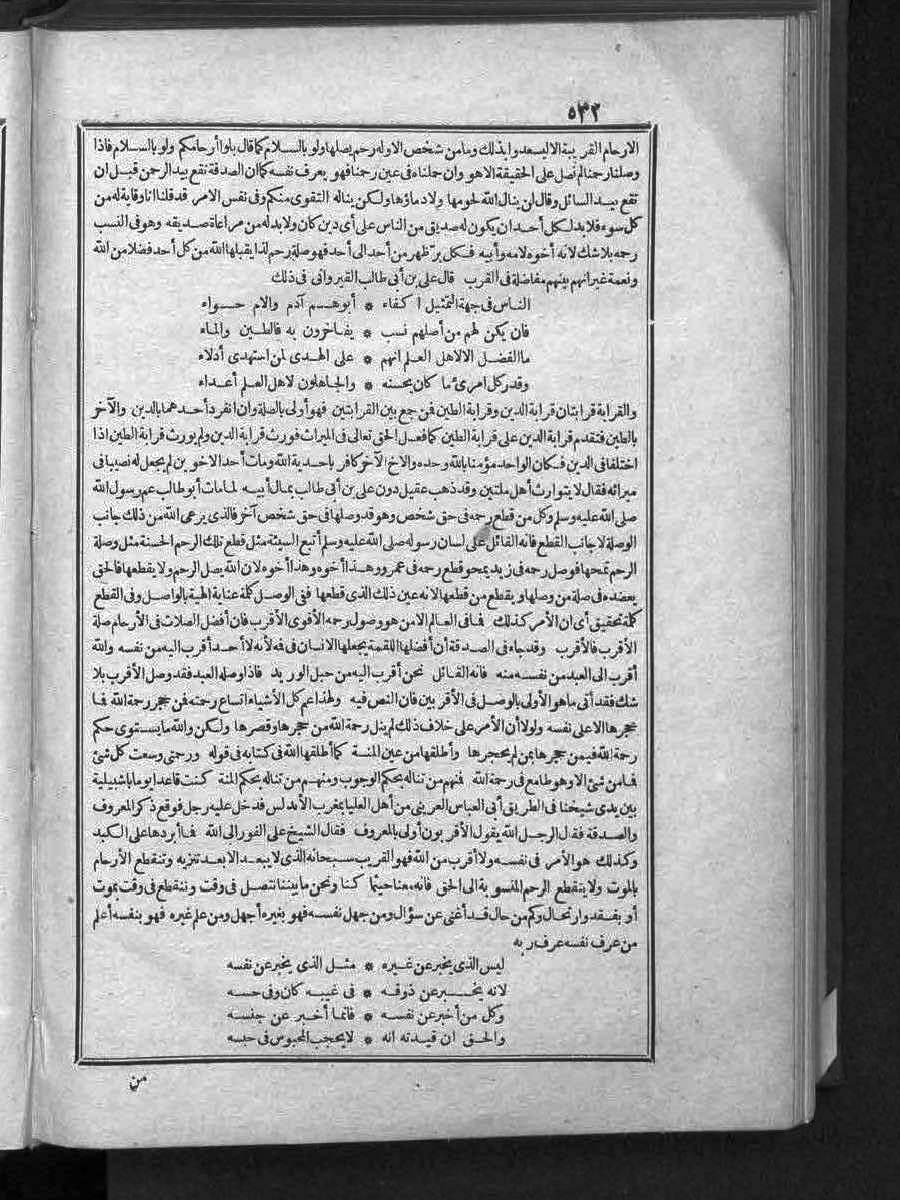 ٥٣٢
الارحام القريبة الا ليسعدوا بذلك وما من شخص الا وله رحم يصلها ولو بالسلام كما قال بلوا أرحامكم ولو بالسلام فاذا
وصلنا رحمنا لم نصل على الحقيقة الا هو وان جلناه فى عين رحمنا فهو يعرف نفسه كما ان الصدقة تقع بيد الرحمن قبل ان
تقع بيد السائل وقال لن ينال الله لحومها ولا دماؤها ولكن يناله التقوى منكم وفى نفس الامر قد قلنا انا وقاية له من
كل سوء فلا بد لكل أحد ان يكون له صديق من الناس على أى دين كان ولا بد له من مراعاة صديقه وهو فى النسب
رحمه بلا شك لانه أخوه لامه وأبيه فكل بر ظهر من أحد الى أحد فهو صلة رحم لذا يقبلها الله من كل أحد فضلا من الله
ونعمة غير انهم بينهم مفاضلة فى القرب قال على بن أبى طالب القيروانى فى ذلك
الناس فى جهة التمثيل اكفاء * أبوهم آدم والام حواء
فان يكن لهم من أصلهم نسب * يفاخرون به فالطين والماء
ما الفضل الا لاهل العلم انهم * على الهدى لمن استهدى أدلاء
وقدر كل امرئ ما كان يحسنه * والجاهلون لاهل العلم أعداء
والقرابة قرابتان قرابة الدين وقرابة الطين فمن جمع بين القرابتين فهو أولى بالصلة وان انفرد أحدهما بالدين والآخر
بالطين فتقدم قرابة الدين على قرابة الطين كما فعل الحق تعالى فى الميراث فورث قرابة الدين ولم يورث قرابة الطين اذا
اختلفا فى الدين فكان الواحد مؤمنا بالله وحده والاخ الآخر كافر باحدية الله ومات أحد الاخوين لم يجعل له نصيبا فى
ميراثه فقال لا يتوارث أهل ملتين وقد ذهب عقيل دون على بن أبى طالب بمال أبيه لما مات أبو طالب عم رسول الله
صلى الله عليه وسلم وكل من قطع رحمه فى حق شخص وهو قد وصلها فى حق شخص آخر فالذى يرعى الله من ذلك جانب
الوصلة لا جانب القطع فانه القائل على لسان رسوله صلى الله عليه وسلم أتبع السيئة مثل قطع تلك الرحم الحسنة مثل وصلة
الرحم تمحها فوصل رحمه فى زيد يمحو قطع رحمه فى عمر ووهذا أخوه وهذا أخوه لان الله يصل الرحم ولا يقطعها فالحق
يعضده فى صلة من وصلها ويقطع من قطعها لانه عين ذلك الذى قطعها ففى الوصل كلمة عناية الهية بالواصل وفى القطع
كلمة تحقيق أى ان الأمر كذلك فما فى العالم الا من هو وصول رحمه الأقوى الأقرب فان أفضل الصلات فى الأرحام صلة
الأقرب فالأقرب وقد جاء فى الصدقة أن أفضلها اللقمة يجعلها الانسان فى فيه لأنه لا أحد أقرب اليه من نفسه والله
أقرب الى العبد من نفسه منه فانه القائل نحن أقرب اليه من حبل الوريد فاذا وصله العبد فقد وصل الأقرب بلا
شك فقد أتى ما هو الأولى بالوصل فى الأقربين فان النص فيه ولهذا عم كل الأشياء اتساع رحمته فمن حجر رحمة الله فما
حجرها الا على نفسه ولولا أن الأمر على خلاف ذلك لم ينل رحمة الله من حجرها وقصرها ولكن والله ما يستوى حكم
رحمة الله فيمن حجرها بمن لم يحجرها وأطلقها من عين المنة كما أطلقها الله فى كتابه فى قوله ورحمتى وسعت كل شئ
فما من شئ الا وهو طامع فى رحمة الله فمنهم من تناله بحكم الوجوب ومنهم من تناله بحكم المنة كنت قاعدا يوما باشبيلية
بين يدى شيخنا فى الطريق أبى العباس العرينى من أهل العليا بمغرب الأندلس فدخل عليه رجل فوقع ذكر المعروف
والصدقة فقال الرجل الله يقول الأقربون أولى بالمعروف فقال الشيخ على الفور الى الله فما أبردها على الكبد
وكذلك هو الأمر فى نفسه ولا أقرب من الله فهو القريب سبحانه الذى لا يبعد الا بعد تنزيه وتنقطع الأرحام
بالموت ولا ينقطع الرحم المنسوبة الى الحق فانه معنا حيثما كنا ونحن ما بيننا نتصل فى وقت وننقطع فى وقت بموت
أو بفقد وارتحال وكم من حال قد أغنى عن سؤال ومن جهل نفسه فهو بغيره أجهل ومن علم غيره فهو بنفسه أعلم
من عرف نفسه عرف ربه
ليس الذى يخبر عن غيره * مثل الذى يخبر عن نفسه
لانه يخبر عن ذوقه * فى غيبه كان وفى حسه
وكل من أخبر عن نفسه * فانما أخبر عن جنسه
والحق ان قيدته انه * لا يحجب المحبوس فى حبسه
من